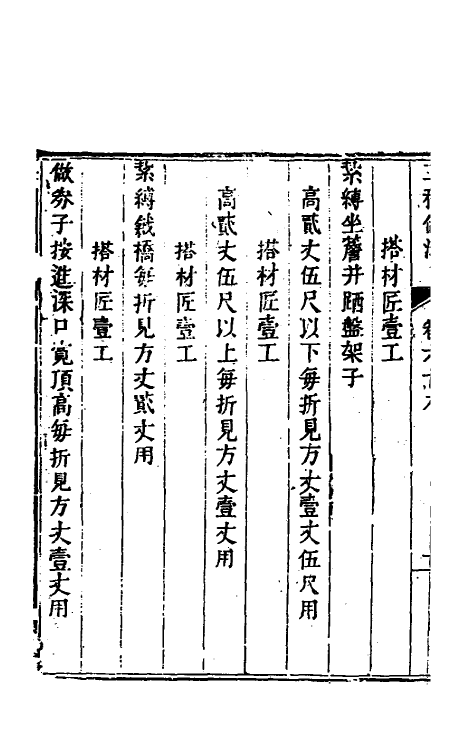 搭材匠壹工
紥縛坐簷并晒盤架子
高貳丈伍尺以下每折見方丈壹丈伍尺用
搭材匠壹工
高貳丈伍尺以上每折見方丈壹丈用
搭材匠壹工
紥縛戧橋每折見方丈貳丈用
搭材匠壹工
做券子按進深口寬頂高每折見方丈壹丈用